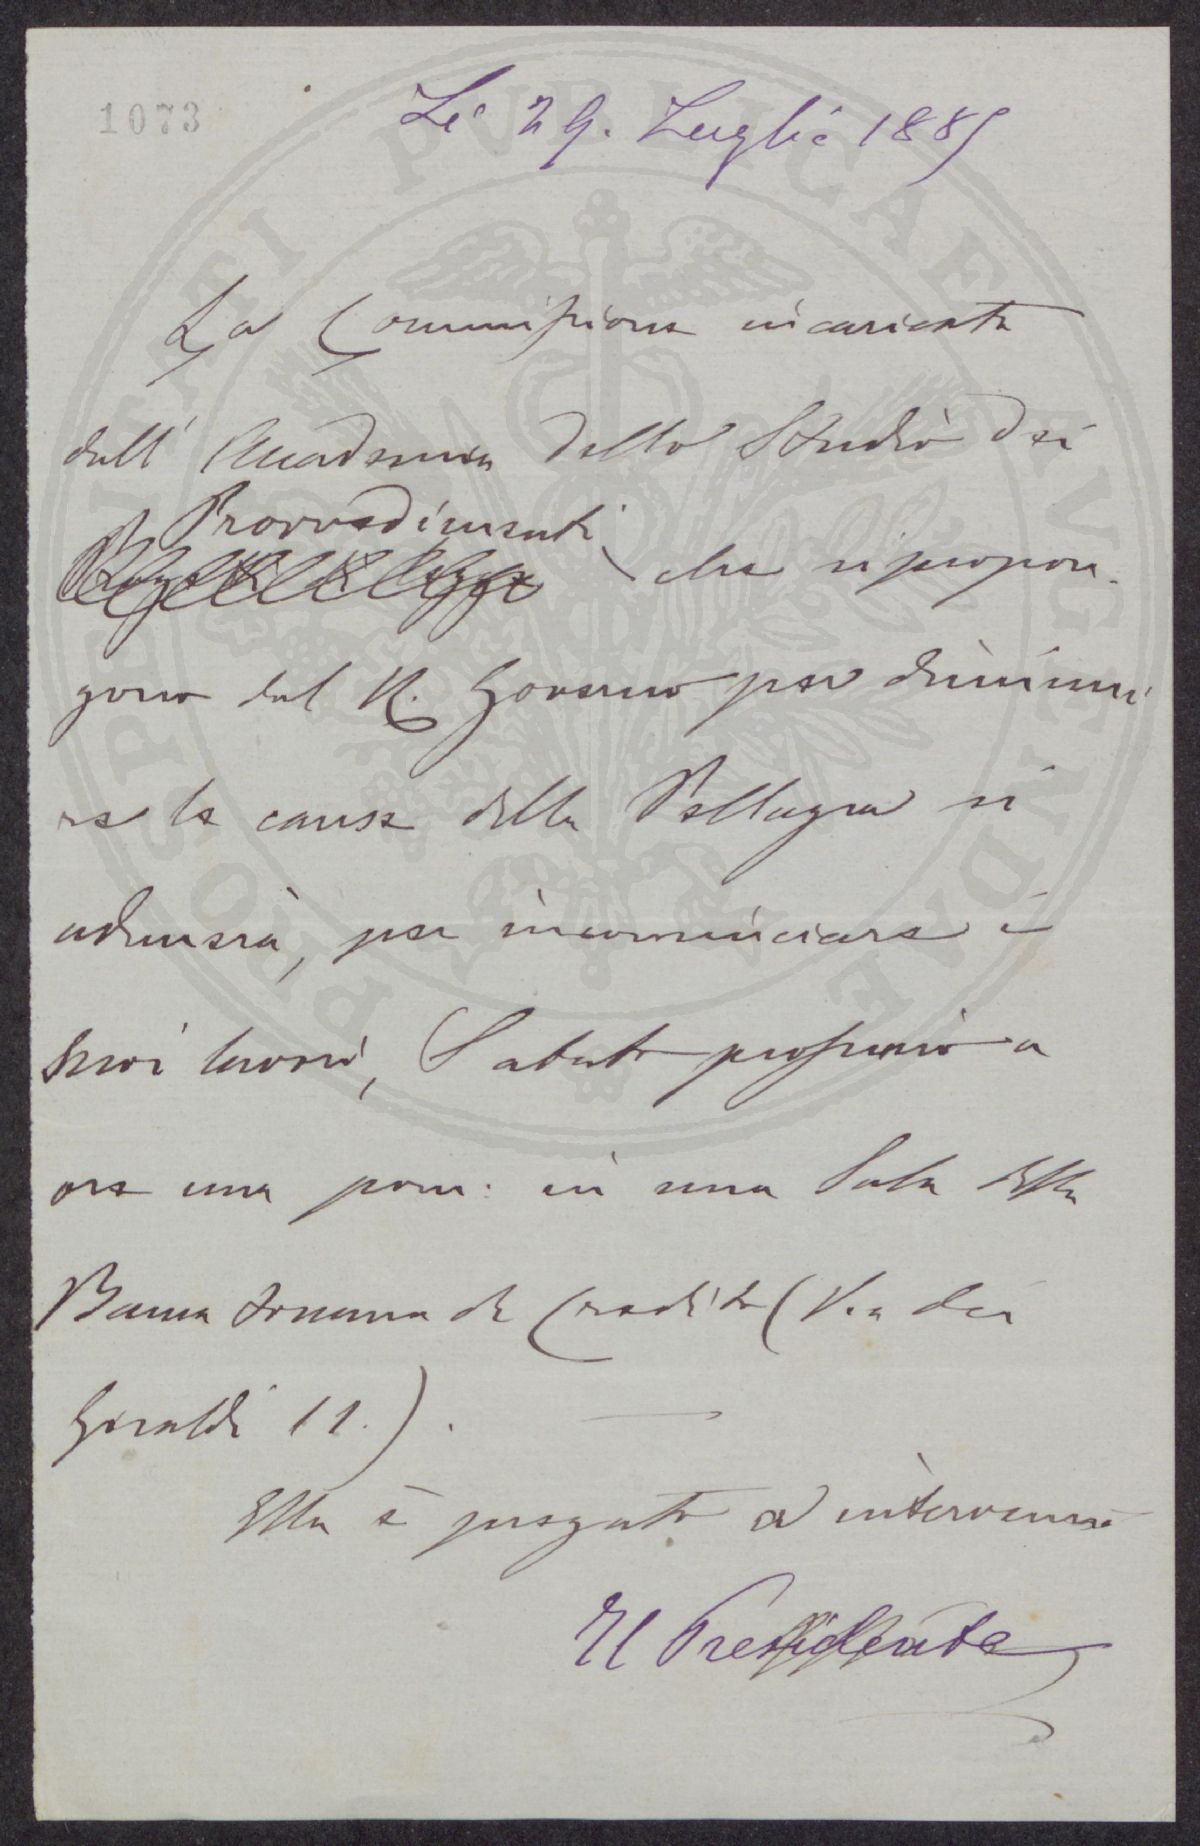 1073
Li 29. Luglio 1885
La Commissione incaricata
dall' Accademia dello Studio dei
Provvedimenti
che si propon-
gono dal R. Governo per diminui
re le cause della Pellagra si
adunerà, per incominciare i
suoi lavori, Sabato prossimo a
ore una pom: in una Sala della
Banca di Credito (Via dei
Giraldi 11.).
Ella è pregato a intervenire
Il Presidente
PROSPERITATI PVBLICAE AVGENDAE